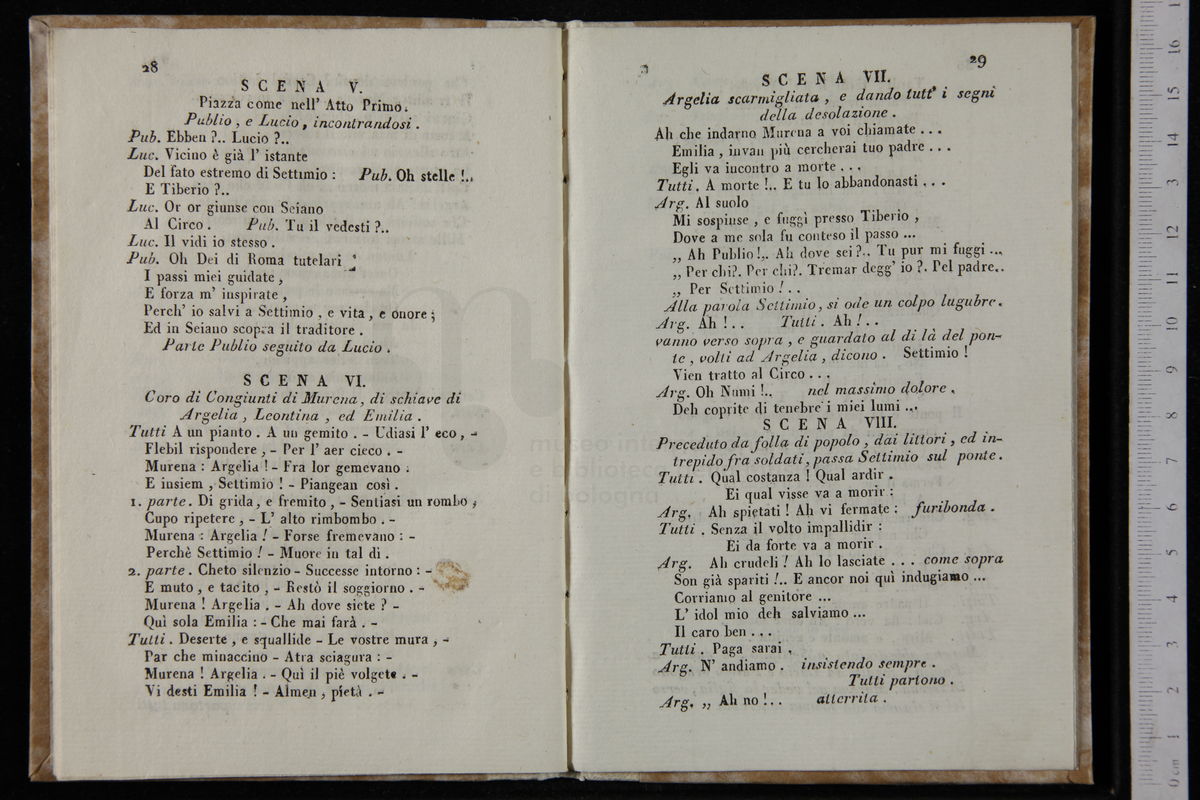 28
SCENA V.
Piazza come nell' Atto Primo.
Publio, e Lucio, incontrandosi.
Pub. Ebben ?.. Lucio ?..
Luc. Vicino è già l' istante
Del fato estremo di Settimio : Pub. Oh stelle !..
E Tiberio ?..
Luc. Or or giunse con Seiano
Al Circo. Pub. Tu il vedesti ?..
Luc. Il vidi io stesso.
Pub. Oh Dei di Roma tutelari
I passi miei guidate,
E forza m' inspirate,
Perch' io salvi a Settimio, e vita, e onore;
Ed in Seiano scopra il traditore.
Parte Publio seguito da Lucio.
SCENA VI.
Coro di Congiunti di Murena, di schiave di
Argelia, Leontina, ed Emilia.
Tutti A un pianto. A un gemito. - Udiasi l' eco, -
Flebil rispondere, - Per l' aer cieco. -
Murena : Argelia ! - Fra lor gemevano :
E insiem, Settimio ! - Piangean così.
1. parte. Di grida, e fremito, - Sentiasi un rombo,
Cupo ripetere, - L' alto rimbombo. -
Murena : Argelia ! - Forse fremevano : -
Perchè Settimio ! - Muore in tal dì.
2. parte. Cheto silenzio - Successe intorno : -
E muto, e tacito, - Restò il soggiorno. -
Murena ! Argelia. - Ah dove siete ? -
Quì sola Emilia : - Che mai farà. -
Tutti. Deserte, e squallide - Le vostre mura, -
Par che minaccino - Atra sciagura : -
Murena ! Argelia. - Quì il piè volgete. -
Vi desti Emilia ! - Almen, pietà. -
29
SCENA VII.
Argelia scarmigliata, e dando tutt' i segni
della desolazione.
Ah che indarno Murena a voi chiamate . . .
Emilia, invan più cercherai tuo padre . . .
Egli va incontro a morte . . .
Tutti. A morte !.. E tu lo abbandonasti . . .
Arg. Al suolo
Mi sospinse, e fuggì presso Tiberio,
Dove a me sola fu conteso il passo ...
„ Ah Publio !.. Ah dove sei ?.. Tu pur mi fuggi ...
„ Per chi?. Per chi?. Tremar degg' io ?. Pel padre..
„ Per Settimio ! . .
Alla parola Settimio, si ode un colpo lugubre.
Arg. Ah ! . . Tutti. Ah ! . .
vanno verso sopra, e guardato al di là del pon-
te, volti ad Argelia, dicono. Settimio !
Vien tratto al Circo . . .
Arg. Oh Numi !.. nel massimo dolore.
Deh coprite di tenebre i miei lumi ...
SCENA VIII.
Preceduto da folla di popolo, dai littori, ed in-
trepido fra soldati, passa Settimio sul ponte.
Tutti. Qual costanza ! Qual ardir.
Ei qual visse va a morir :
Arg. Ah spietati ! Ah vi fermate : furibonda.
Tutti. Senza il volto impallidir :
Ei da forte va a morir.
Arg. Ah crudeli ! Ah lo lasciate . . . come sopra
Son già spariti !.. E ancor noi quì indugiamo ...
Corriamo al genitore ...
L' idol mio deh salviamo ...
Il caro ben . . .
Tutti. Paga sarai.
Arg. N' andiamo. insistendo sempre.
Tutti partono.
Arg. „ Ah no !. . atterrita.
museo inte
e bibliote
di bologna
0 cm 1 2 3 4 5 6 7 8 9 10 11 12 13 14 15 16